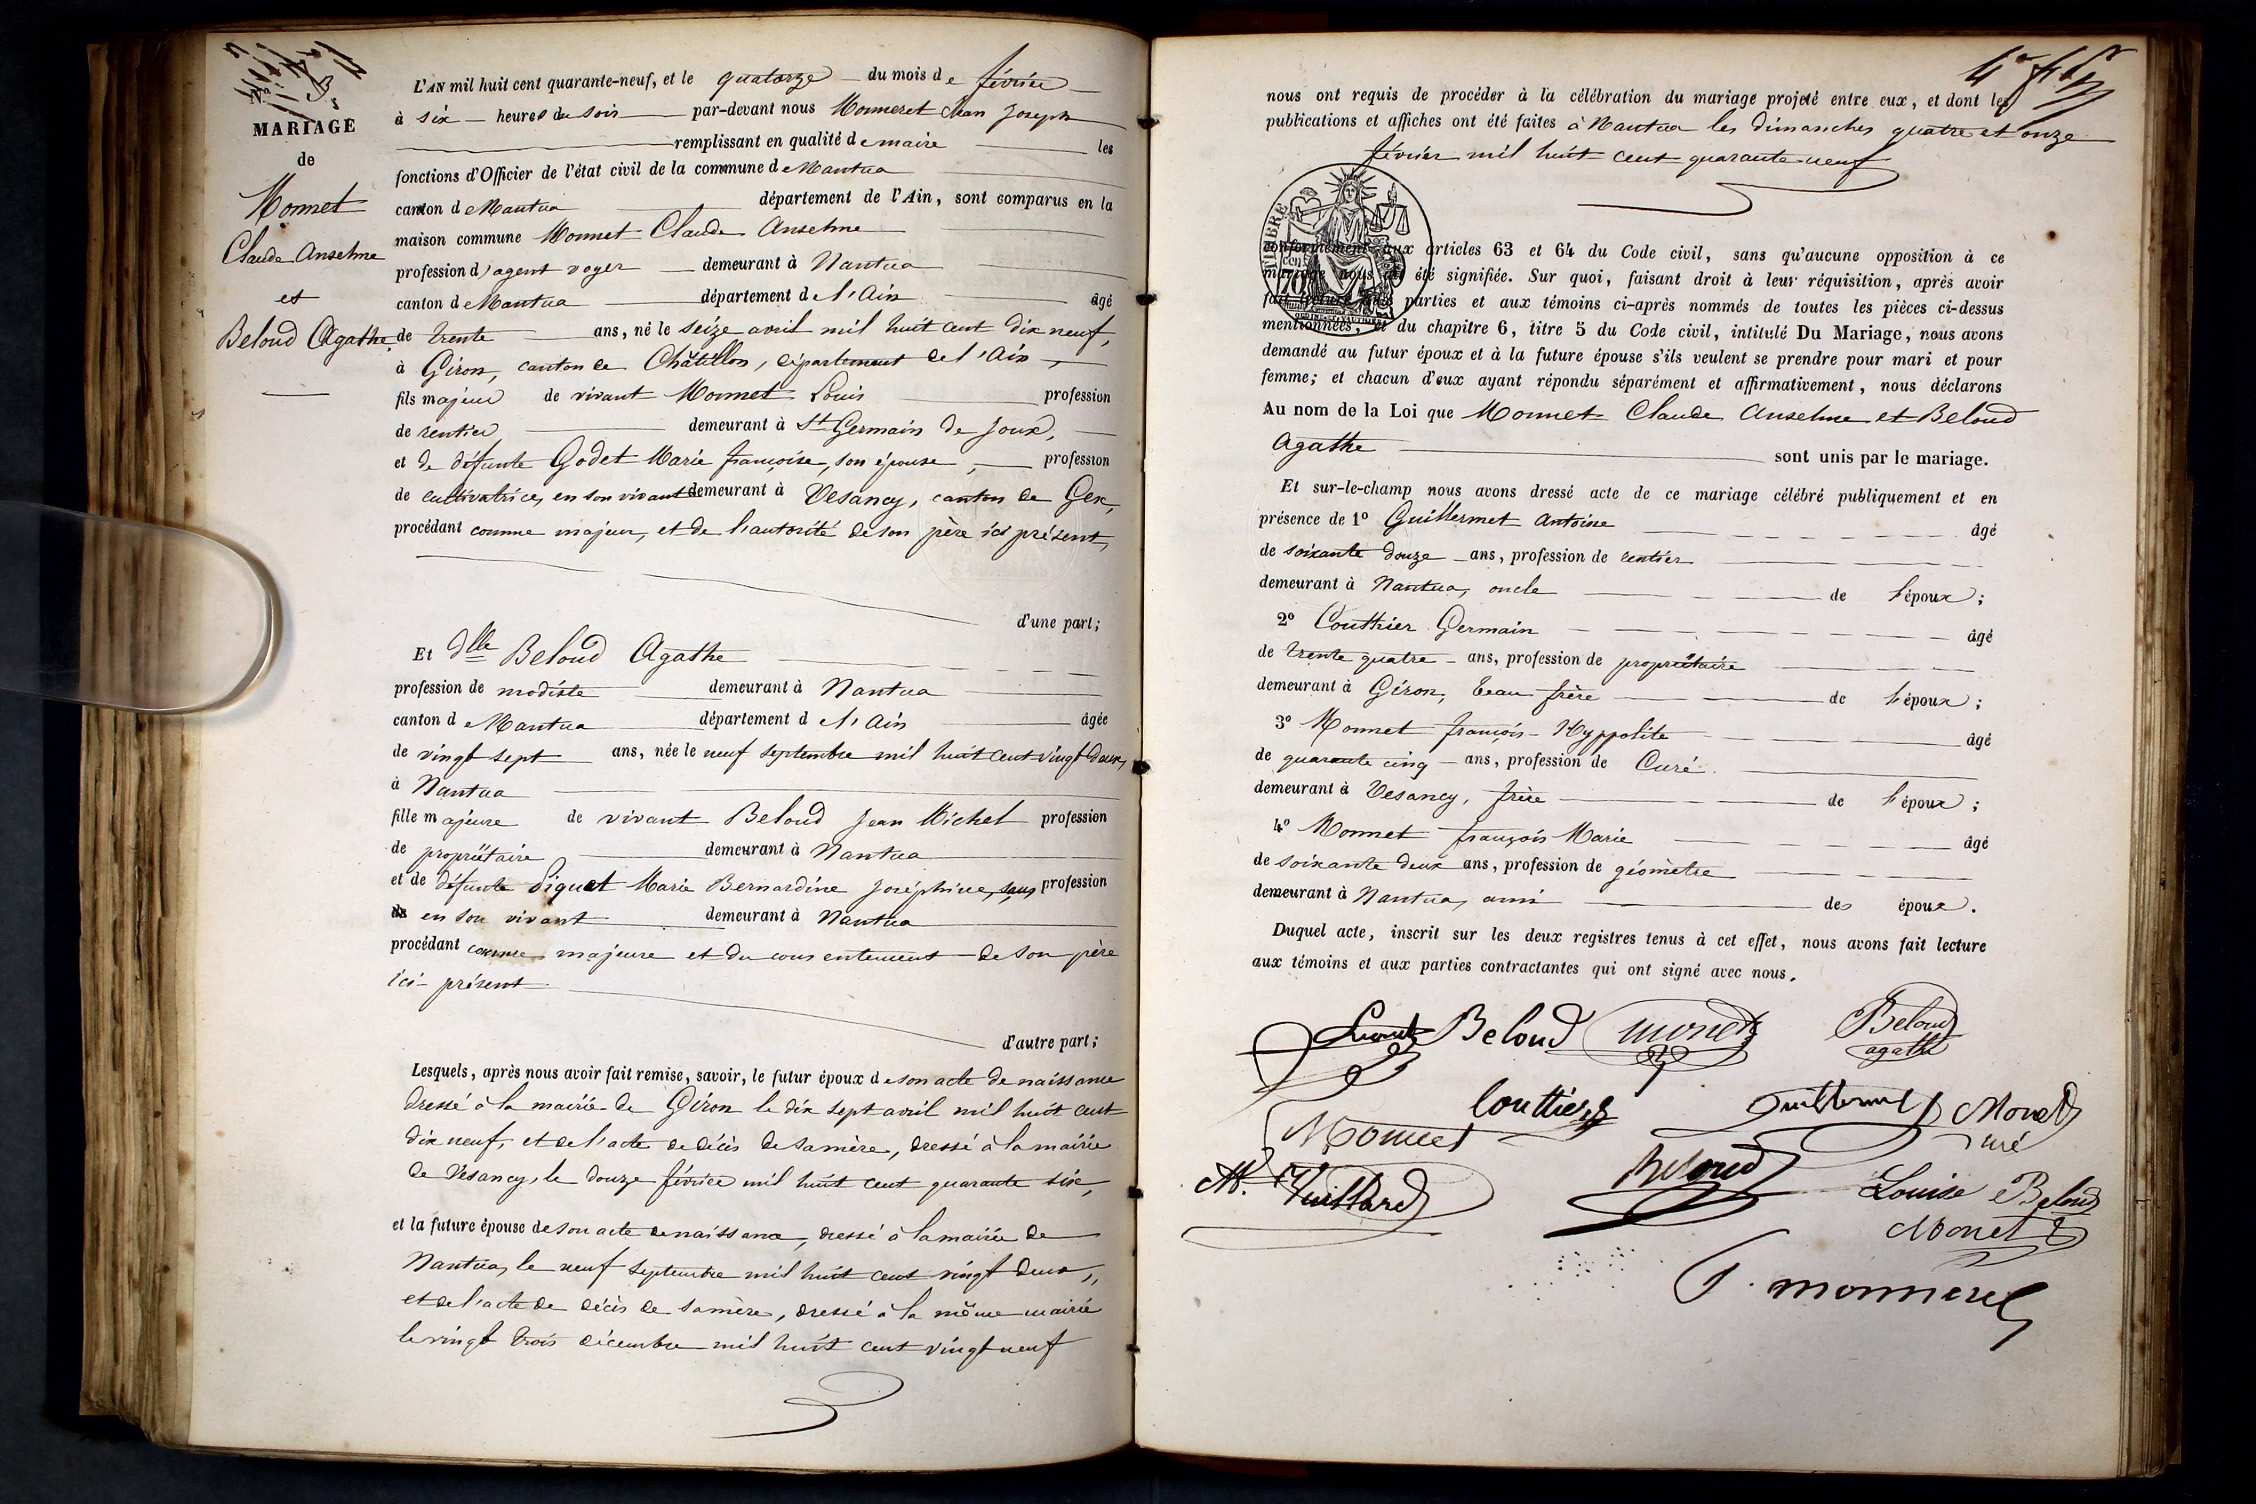 MARIAGE
de
Monnet
Claude Anselme
et
Beloud Agathe.
L'AN mil huit cent quarante-neuf, et le quatorze du mois de février
à six heures du soir par-devant nous Monneret Jean Joseph
remplissant en qualité de maire les
fonctions d'Officier de l'état civil de la commune de Nantua
canton de Nantua département de l'Ain, sont comparus en la
maison commune Monnet Claude Anselme
profession d'agent voyer demeurant à Nantua
canton de Nantua département de l'Ain âgé
de trente ans, né le seize avril mil huit cent dix neuf,
à Giron, canton de Châtillon, département de l'Ain,
fils majeur de vivant Monnet Louis profession
de rentier demeurant à St Germain de Joux,
et de défunte Godet Marie françoise, son épouse, profession
de cultivatrice, en son vivant demeurant à Vesancy, canton de Gex,
procédant comme majeur, et de l'autorité de son père ici présent,
d'une part;
Et dlle Beloud Agathe
profession de modiste demeurant à Nantua
canton de Nantua département de l'Ain âgée
de vingt sept ans, née le neuf septembre mil huit cent vingt deux,
à Nantua
fille majeure de vivant Beloud Jean Michel profession
de propriétaire demeurant à Nantua
et de défunte Piquet Marie Bernardine Joséphine, sans profession
de en son vivant demeurant à Nantua
procédant comme majeure et du consentement de son père
ici présent
d'autre part;
Lesquels, après nous avoir fait remise, savoir, le futur époux de son acte de naissance
dressé à la mairie de Giron le dix sept avril mil huit cent
dix neuf, et de l'acte de décès de sa mère, dressé à la mairie
de Vesancy, le douze février mil huit cent quarante six,
et la future épouse de son acte de naissance, dressé à la mairie de
Nantua, le neuf septembre mil huit cent vingt deux,
et de l'acte de décès de sa mère, dressé à la même mairie
le vingt trois décembre mil huit cent vingt neuf
nous ont requis de procéder à la célébration du mariage projeté entre eux, et dont les
publications et affiches ont été faites à Nantua les dimanches quatre et onze
février mil huit cent quarante neuf
TIMBRE
70
conformément aux articles 63 et 64 du Code civil, sans qu'aucune opposition à ce
mariage nous ait été signifiée. Sur quoi, faisant droit à leur réquisition, après avoir
fait lecture aux parties et aux témoins ci-après nommés de toutes les pièces ci-dessus
mentionnées, et du chapitre 6, titre 5 du Code civil, intitulé Du Mariage, nous avons
demandé au futur époux et à la future épouse s'ils veulent se prendre pour mari et pour
femme; et chacun d'eux ayant répondu séparément et affirmativement, nous déclarons
Au nom de la Loi que Monnet Claude Anselme et Beloud
Agathe sont unis par le mariage.
Et sur-le-champ nous avons dressé acte de ce mariage célébré publiquement et en
présence de 1° Guillermet Antoine âgé
de soixante douze ans, profession de rentier
demeurant à Nantua, oncle de l'époux;
2° Couthier Germain âgé
de trente quatre ans, profession de propriétaire
demeurant à Giron, beau frère de l'époux;
3° Monnet françois-Hyppolite âgé
de quarante cinq ans, profession de Curé.
demeurant à Vesancy, frère de l'époux;
4° Monnet françois Marie âgé
de soixante deux ans, profession de géomètre
demeurant à Nantua, ami des époux.
Duquel acte, inscrit sur les deux registres tenus à cet effet, nous avons fait lecture
aux témoins et aux parties contractantes qui ont signé avec nous.
Beloud monet Beloud
agathe
Couttier Guillermet Monet
curé
Monnet
Vuillard Beloud Louise Beloud
Monet
J. monneret